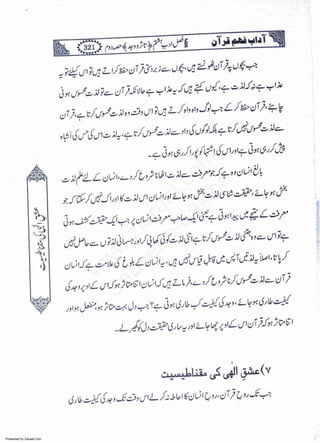 آدابِ فہمِ قرآن
فصل ادب ہشتم (تاثر و وجد) حصہ دوم
321
جب بچوں پہ قرآن ٹھونستے ہیں، بچوں سے زبردستی قرآن حفظ کراتے ہیں تو اس کیلئے تو یہ
عذاب ہے نہ کہ لذت ہے، کیوں کہتے ہیں کہ یہ عذاب ہے حالانکہ قرآن سے تو لذت ہونی
چاہئے، قرآن حفظ کر کے جب لوگ واہ واہ کرتے ہیں تو اس وقت وہ لذت محسوس کرتا ہے، قرآن
سے لذت محسوس نہیں کرتا ہے بلکہ لوگوں کی داد سے لذت محسوس کرتا ہے، یہ لذت اس کی حس کی
پیش کر رہی ہوتی ہے اور اس کی اشتہا کو پورا کر رہی ہوتی ہے۔
بالغ انسان وہ ہے کہ جو معرفت سے لذت اٹھانا شروع کر دے، انسان کے لئے علم لذت
بخش ہو جائے، حقیقت شناسی لذت بخش ہو جائے اور انسان اس لذت کا ادراک نہیں کر سکتا کہ جو
معرفت کے نتیجے میں پیدا ہوتی ہے یعنی ایک صاحب معرفت انسان پر جب ایک حقیقت کشف ہوتی
ہے تو اس سے وہ جتنی لذت محسوس کرتا ہے اتنی لذت کوئی کھا پی کر اور جسمانی لذتوں سے حاصل نہیں
کر پاتا، اصلاً یہ لذتیں آپس میں قابل قیاس نہیں ہیں، یہ انسان کے بلوغ کی علامت ہے کہ انسان
قرآن سے لذت محسوس کرنا شروع کر دے، فرماتے ہیں کہ انسان اتنا متاثر ہو کہ اس کے اوپر وجد کی
کیفیت طاری ہو جائے، وجد کی کیفیت کب طاری ہوتی ہے؟ جب دل بہت متاثر ہو، منفعل ہو اور
اتنا متاثر ہو کہ قرآن اس کے اوپر چھا جائے اور یہ ساری حقیقت دل کو گھیر لے۔
۷) عشقِ الٰہی کی مقناطیسیت
جب تک روحِ قرآن، روحِ انسان کا احاطہ نہ کر لے اس وقت تک وجد کی کیفیت طاری
عشق الٰہی کی مقناطیسیت
Presented by Ziaraat.Com